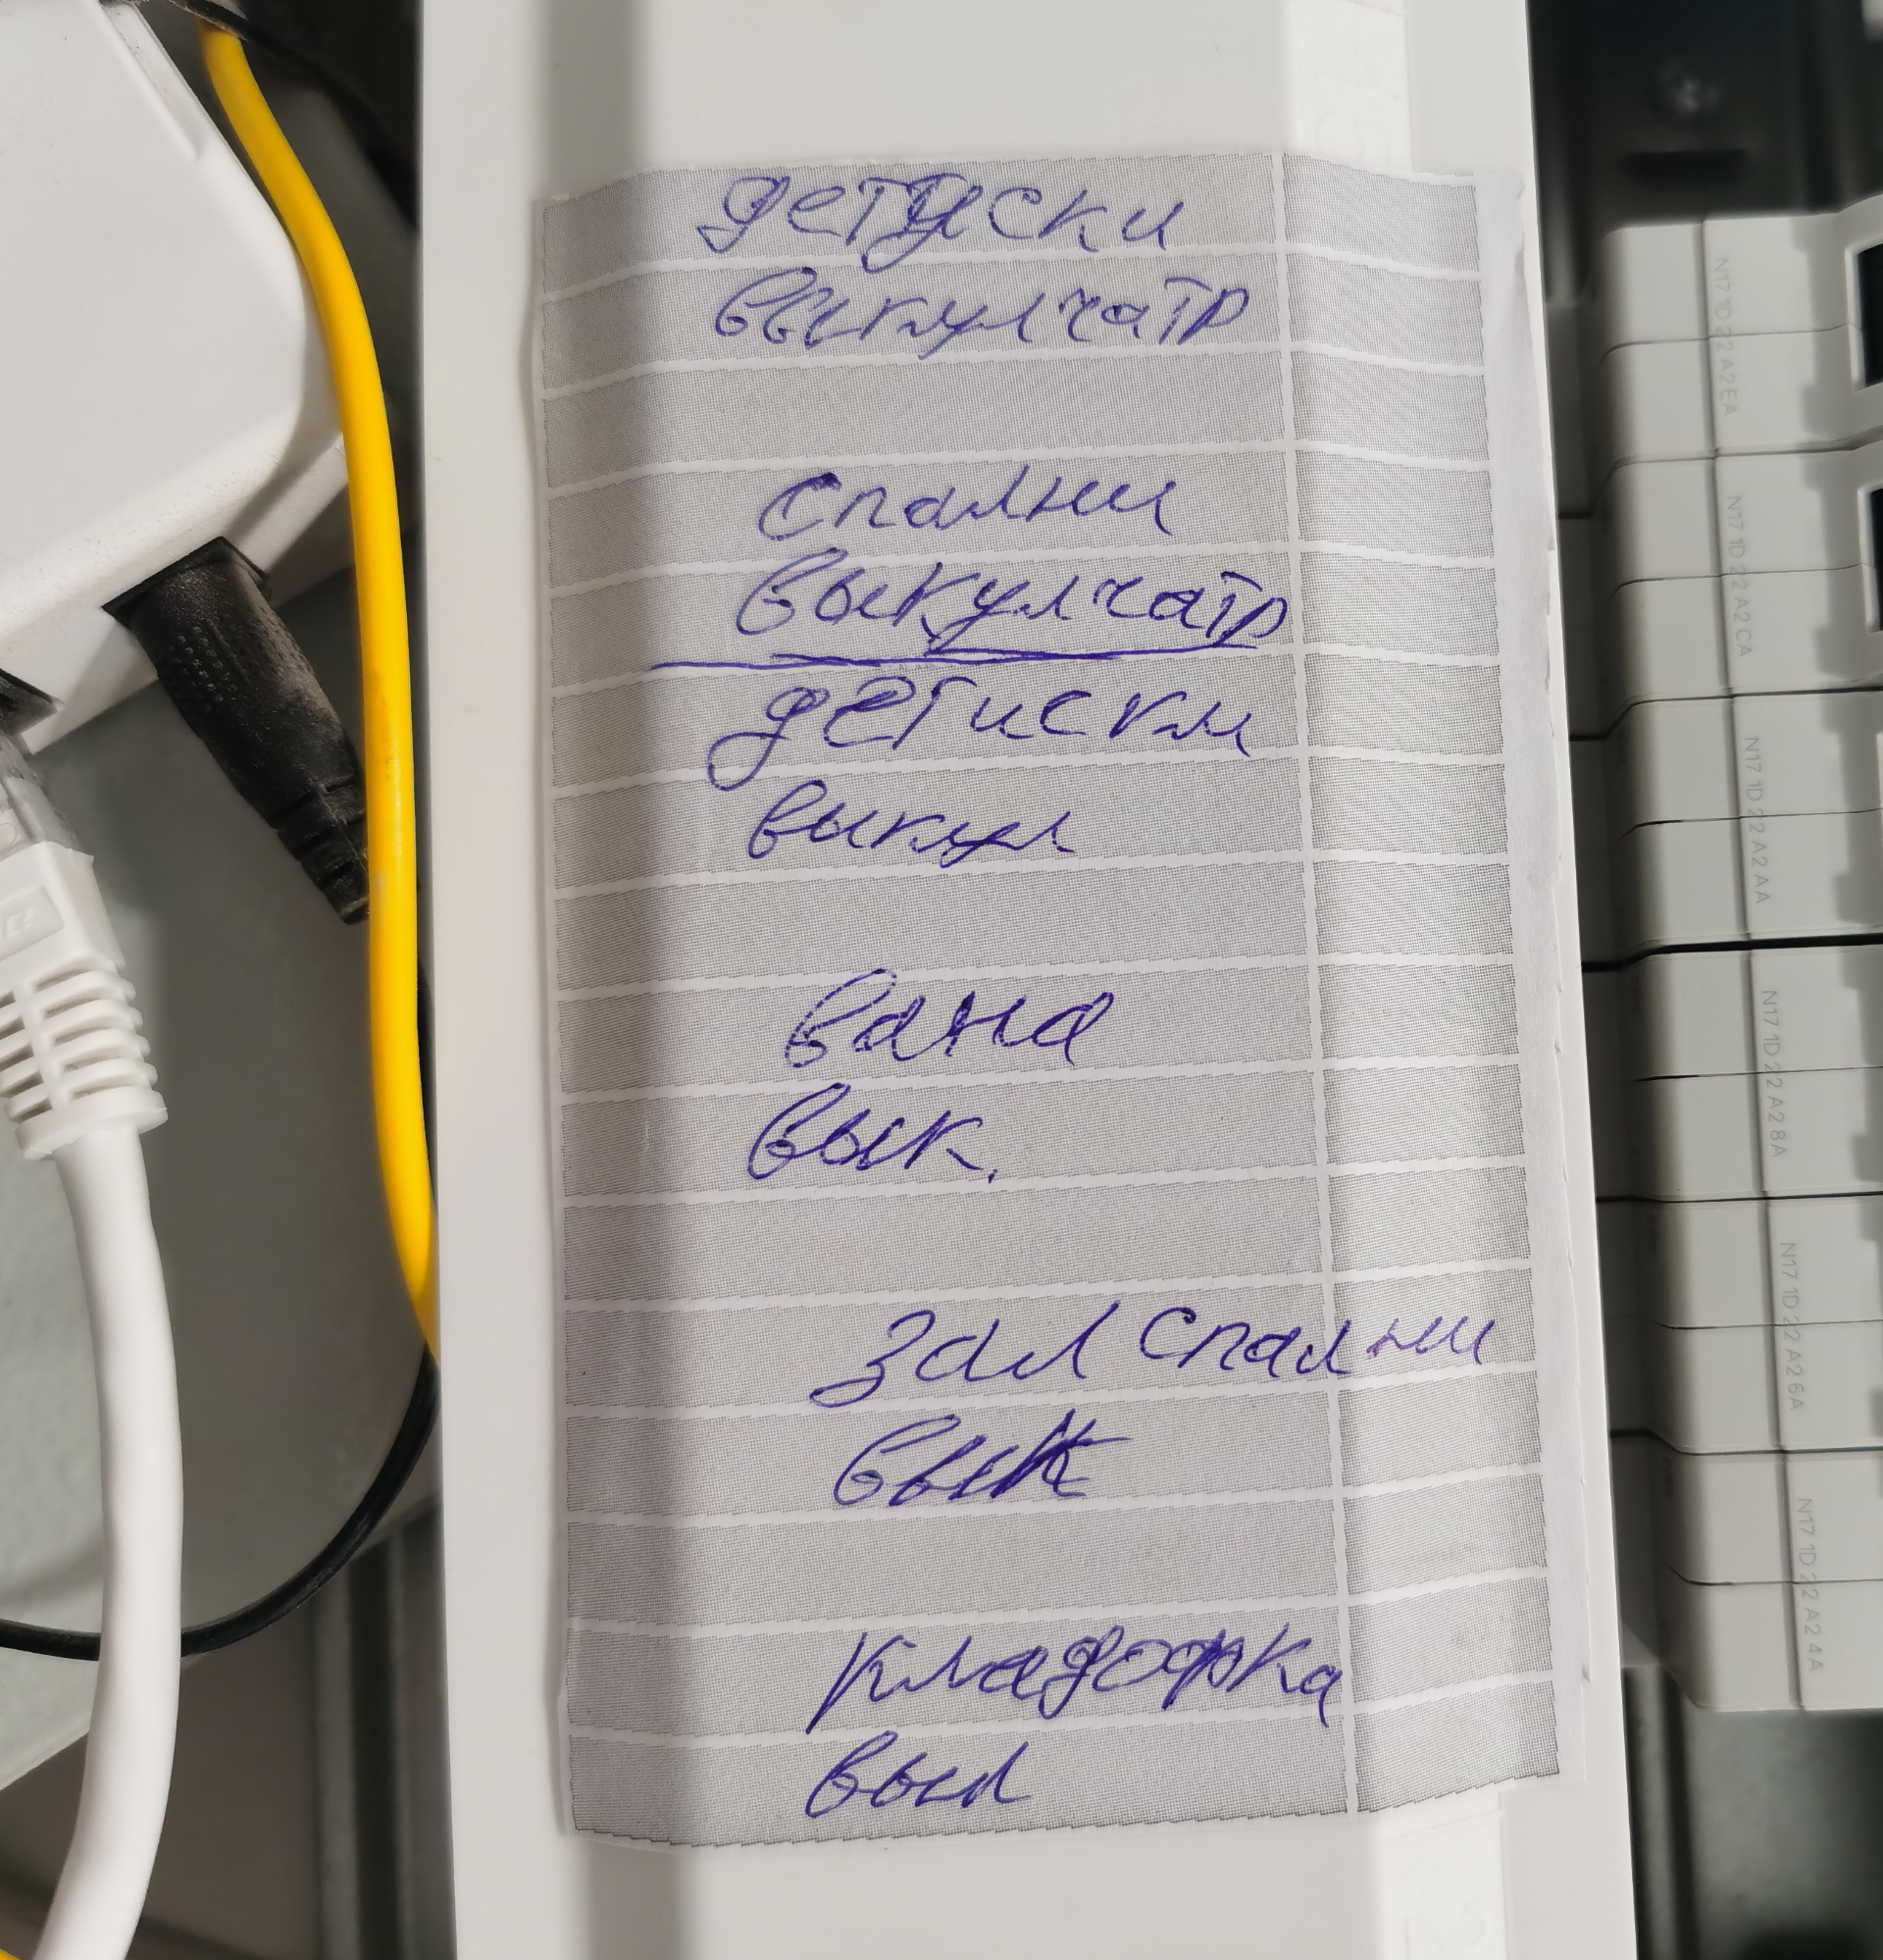 детдски
выкулчатр
спални
выкулчатр
детиски
выкул
вана
вык.
зал спални
вык
кладофка
выл
N17 1D 22 A2 EA
N17 1D 22 A2 CA
N17 1D 22 A2 AA
N17 1D 22 A2 8A
N17 1D 22 A2 6A
N17 1D 22 A2 4A